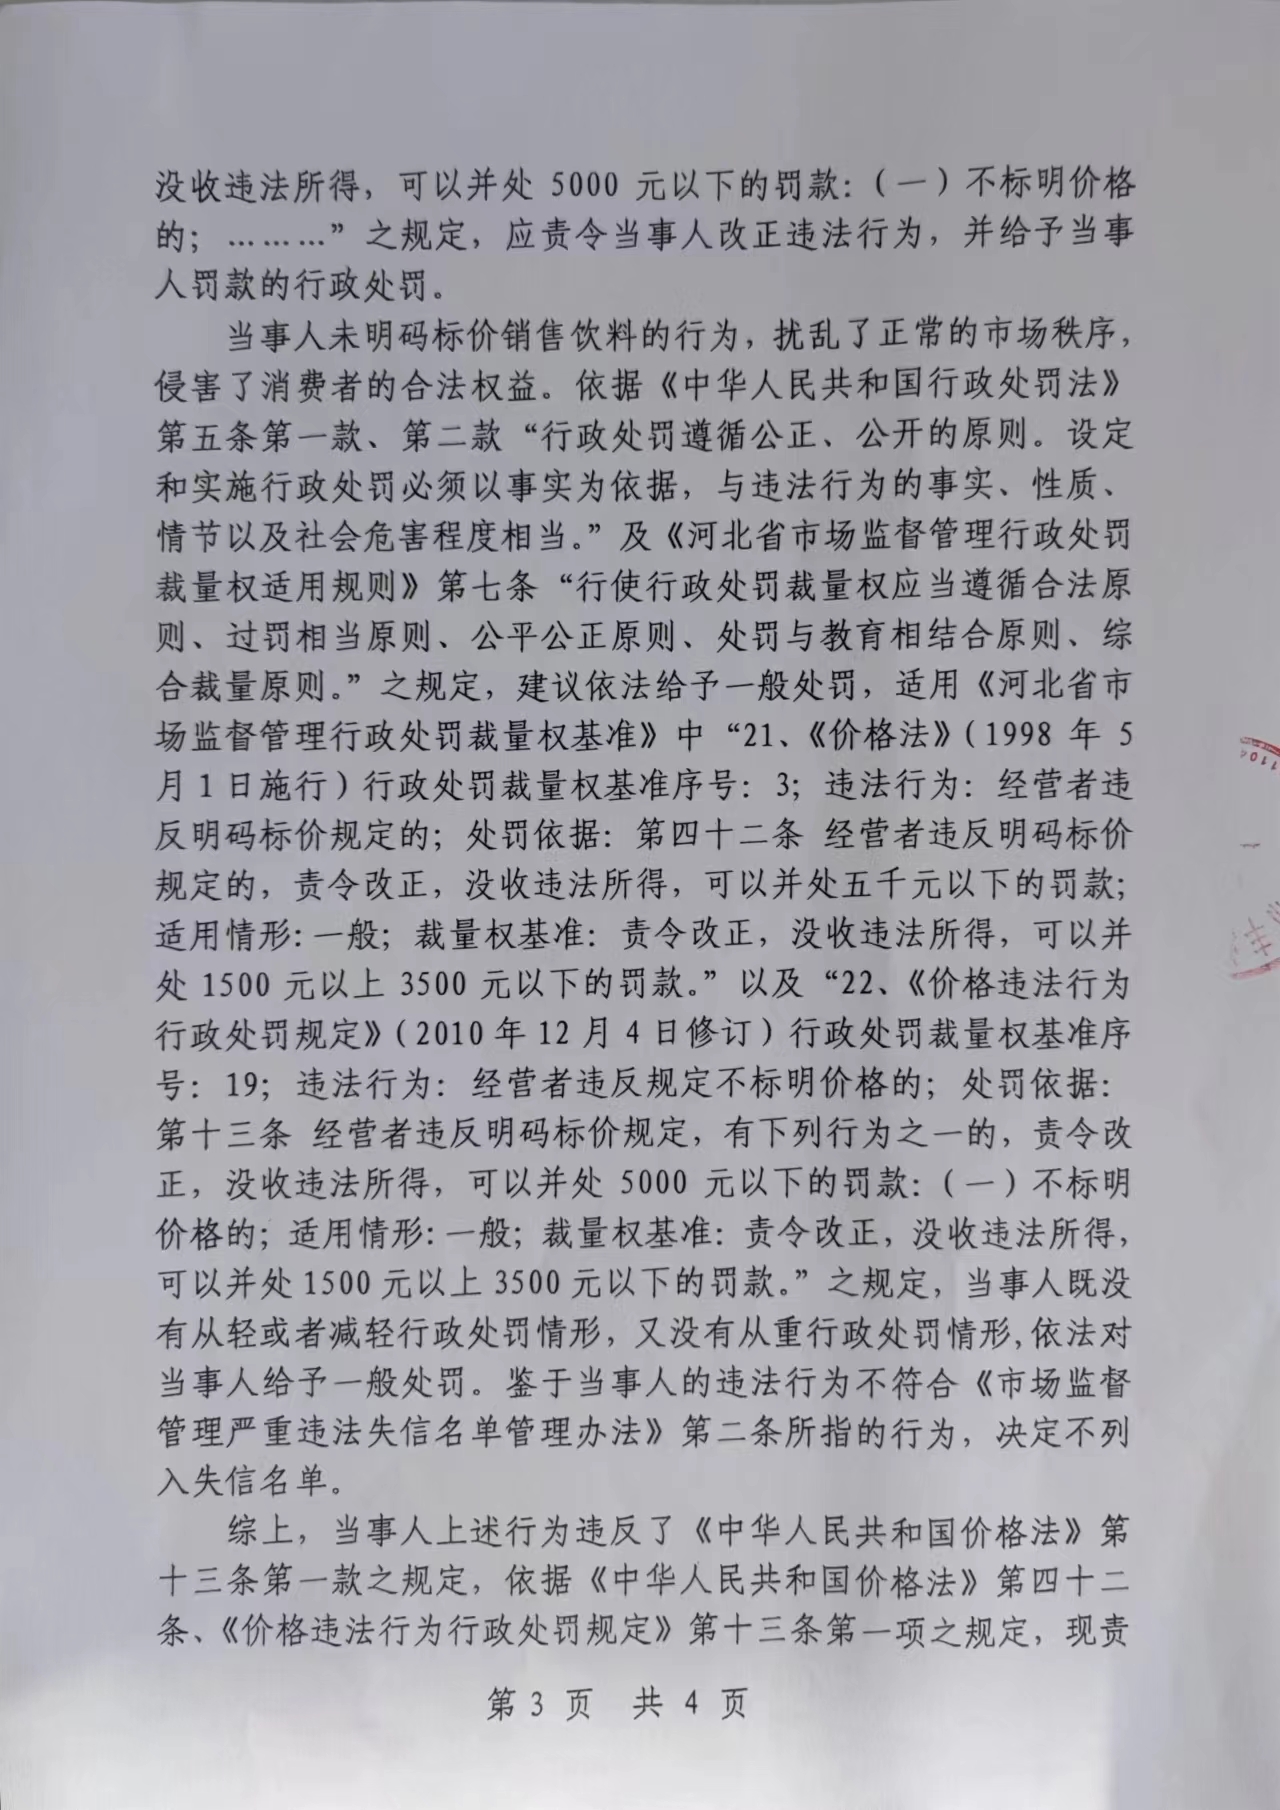 没收违法所得，可以并处 5000 元以下的罚款:（一）不标明价格
的；………”之规定，应责令当事人改正违法行为，并给予当事
人罚款的行政处罚。
当事人未明码标价销售饮料的行为，扰乱了正常的市场秩序，
侵害了消费者的合法权益。依据《中华人民共和国行政处罚法》
第五条第一款、第二款“行政处罚遵循公正、公开的原则。设定
和实施行政处罚必须以事实为依据，与违法行为的事实、性质、
情节以及社会危害程度相当。”及《河北省市场监督管理行政处罚
裁量权适用规则》第七条“行使行政处罚裁量权应当遵循合法原
则、过罚相当原则、公平公正原则、处罚与教育相结合原则、综
合裁量原则。”之规定，建议依法给予一般处罚，适用《河北省市
场监督管理行政处罚裁量权基准》中“21、《价格法》（1998 年 5
月 1 日施行）行政处罚裁量权基准序号：3；违法行为：经营者违
反明码标价规定的；处罚依据：第四十二条 经营者违反明码标价
规定的，责令改正，没收违法所得，可以并处五千元以下的罚款；
适用情形：一般；裁量权基准：责令改正，没收违法所得，可以并
处 1500 元以上 3500 元以下的罚款。”以及“22、《价格违法行为
行政处罚规定》（2010 年 12 月 4 日修订）行政处罚裁量权基准序
号：19；违法行为：经营者违反规定不标明价格的；处罚依据：
第十三条 经营者违反明码标价规定，有下列行为之一的，责令改
正，没收违法所得，可以并处 5000 元以下的罚款:（一）不标明
价格的；适用情形：一般；裁量权基准：责令改正，没收违法所得，
可以并处 1500 元以上 3500 元以下的罚款。”之规定，当事人既没
有从轻或者减轻行政处罚情形，又没有从重行政处罚情形,依法对
当事人给予一般处罚。鉴于当事人的违法行为不符合《市场监督
管理严重违法失信名单管理办法》第二条所指的行为，决定不列
入失信名单。
综上，当事人上述行为违反了《中华人民共和国价格法》第
十三条第一款之规定，依据《中华人民共和国价格法》第四十二
条、《价格违法行为行政处罚规定》第十三条第一项之规定，现责
第 3 页 共 4 页